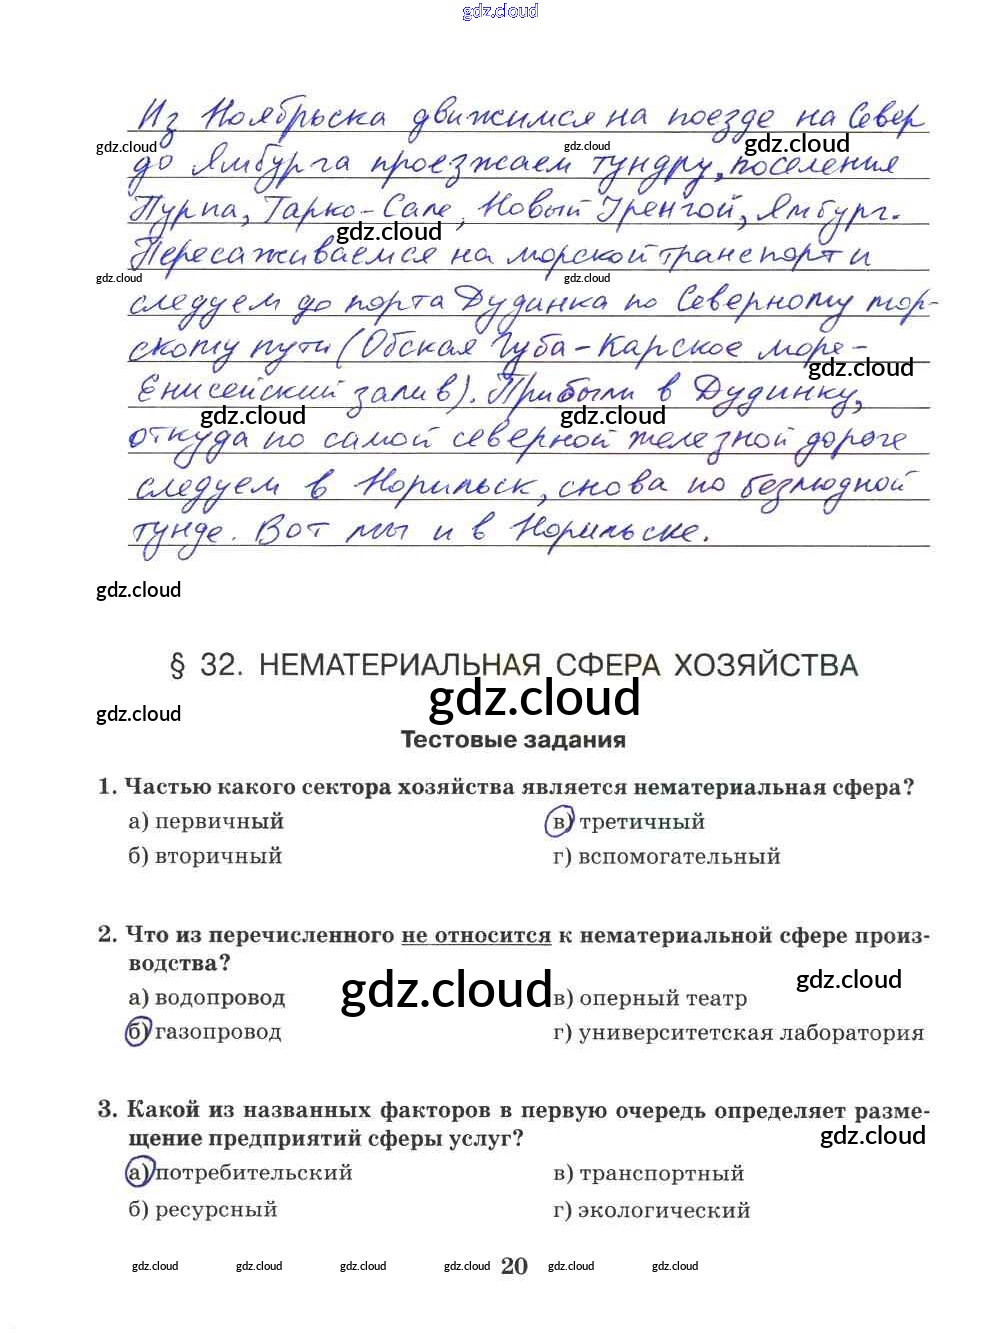 gdz.cloud
Из Ноябрьска движимся на поезде на Север
gdz.cloud gdz.cloud gdz.cloud
до Ямбурга проезжаем тундру, поселения
Пурпа, Тарко-Сале, Новый Уренгой, Ямбург.
gdz.cloud
Пересаживаемся на морской транспорт и
gdz.cloud gdz.cloud
следуем до порта Дудинка по Северному мор-
скому пути (Обская Губа-Карское море-
gdz.cloud
Енисейский залив). Прибыли в Дудинку,
gdz.cloud gdz.cloud
откуда по самой северной железной дороге
следуем в Норильск, снова по безлюдной
тунде. Вот мы и в Норильске.
gdz.cloud
§ 32. НЕМАТЕРИАЛЬНАЯ СФЕРА ХОЗЯЙСТВА
gdz.cloud
gdz.cloud
Тестовые задания
1. Частью какого сектора хозяйства является нематериальная сфера?
а) первичный в) третичный
б) вторичный г) вспомогательный
2. Что из перечисленного не относится к нематериальной сфере произ-
водства?
gdz.cloud gdz.cloud
а) водопровод в) оперный театр
б) газопровод г) университетская лаборатория
3. Какой из названных факторов в первую очередь определяет разме-
щение предприятий сферы услуг?
gdz.cloud
а) потребительский в) транспортный
б) ресурсный г) экологический
gdz.cloud gdz.cloud gdz.cloud gdz.cloud 20 gdz.cloud gdz.cloud